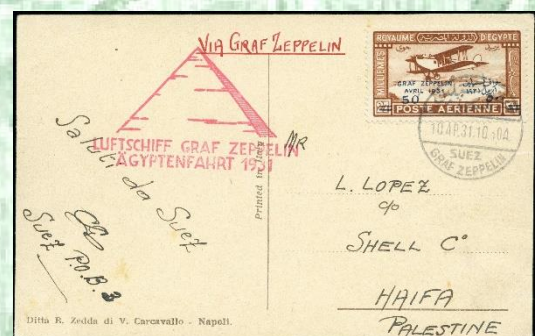 VIA GRAF ZEPPELIN
ROYAUME D'EGYPTE
MILLIEMES
GRAF ZEPPELIN
AVRIL 1931
50
POSTE AÉRIENNE
10 AP.31.10
SUEZ
GRAF ZEPPELIN
LUFTSCHIFF GRAF ZEPPELIN
ÄGYPTENFAHRT 1931
Saluti da Suez
Suez P.O.B. 3
Printed in Italy
L. LOPEZ
c/o
SHELL Cº
HAIFA
PALESTINE
Ditta R. Zedda di V. Carcavallo - Napoli.